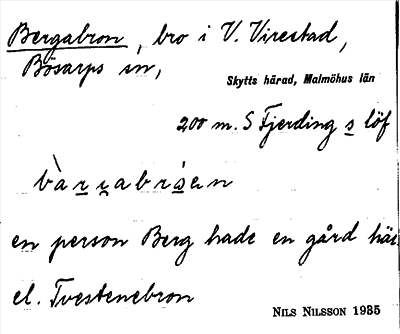 Bergabron, bro i V. Virestad,
Bösarps sn,
Skytts härad, Malmöhus län
200 m. S Fjerdingslöf
bàrrabróan
en person Berg hade en gård här
el. Tvestenebron
NILS NILSSON 1935